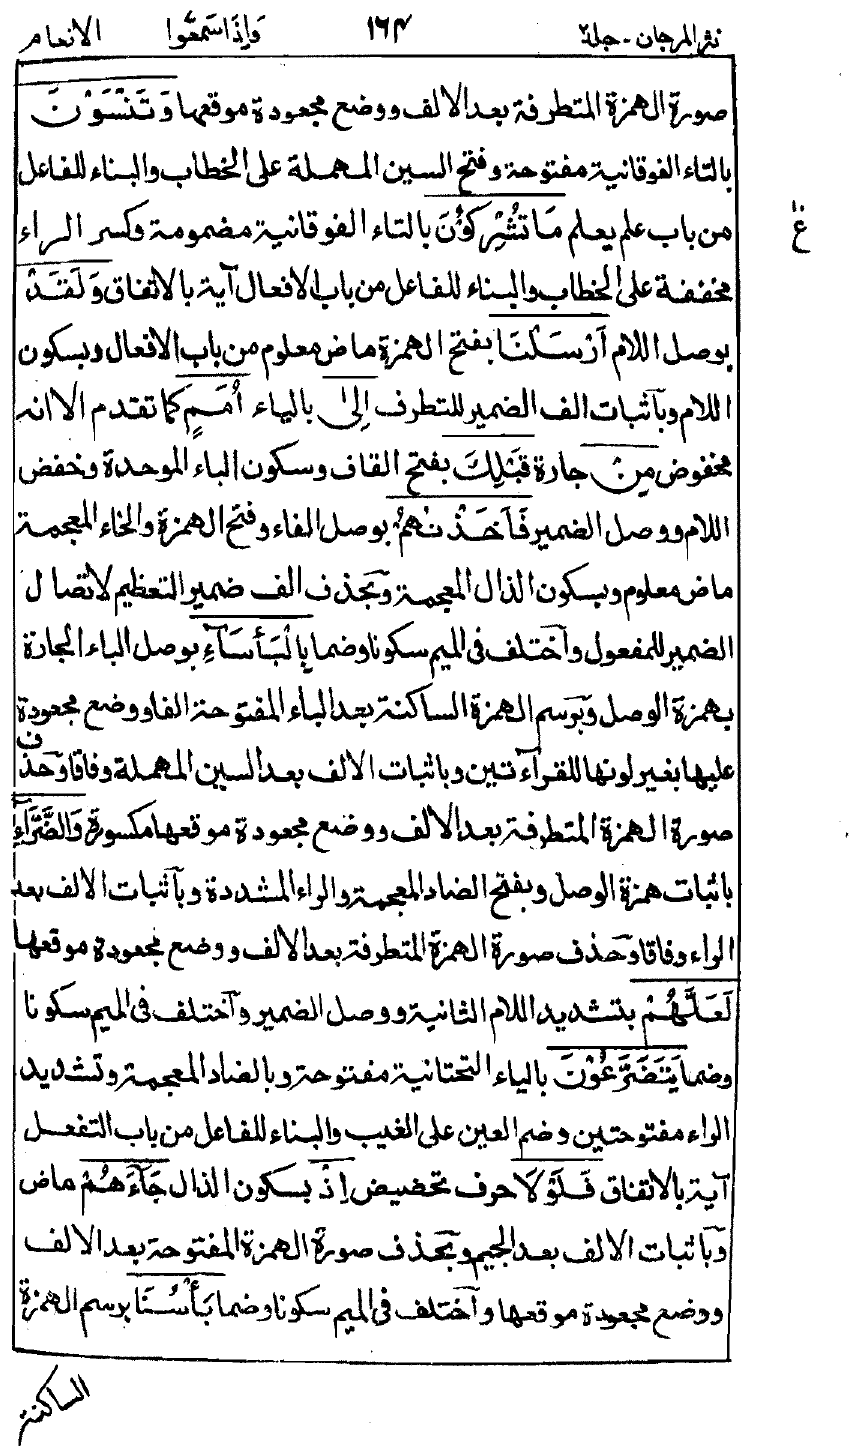 نثر المرجان - جلد ٢ ١٦٤ وَإِذَا سَمِعُوا الانعام
صورة الهمزة المتطرفة بعد الالف ووضع مجعودة موقعها وَتَنْسَوْنَ
بالتاء الفوقانية مفتوحة وفتح السين المهملة على الخطاب والبناء للفاعل
من باب علم يعلم مَا تُشْرِكُوْنَ بالتاء الفوقانية مضمومة وكسر الراء
مخففة على الخطاب والبناء للفاعل من باب الافعال آية بالاتفاق وَلَقَدْ
بوصل اللام أَرْسَلْنَا بفتح الهمزة ماض معلوم من باب الافعال وبسكون
اللام وبآثبات الف الضمير للتطرف اِلىٰ بالياء أُمَمٍ كما تقدم الا انه
مخفوض مِنْ جارة قَبْلِكَ بفتح القاف وسكون الباء الموحدة وخفض
اللام ووصل الضمير فَأَخَذْنٰهُمْ بوصل الفاء وفتح الهمزة والخاء المعجمة
ماض معلوم وبسكون الذال المعجمة وبحذف الف ضمير التعظيم لاتصال
الضمير للمفعول وآختلف فى الميم سكونا وضما بِالْبَأْسَآءِ بوصل الباء الجارة
بهمزة الوصل وبرسم الهمزة الساكنة بعد الباء المفتوحة الفا ووضع مجعودة
عليها بغير لونها للقرآءتين وباثبات الالف بعد السين المهملة وفاقا وحذف
صورة الهمزة المتطرفة بعد الالف ووضع مجعودة موقعها مكسورة وَالضَّرَّآءِ
باثبات همزة الوصل وبفتح الضاد المعجمة والراء المشددة وبآثبات الالف بعد
الراء وفاقا وحذف صورة الهمزة المتطرفة بعد الالف ووضع مجعودة موقعها
لَعَلَّهُمْ بتشديد اللام الثانية ووصل الضمير وآختلف فى الميم سكونا
وضما يَتَضَرَّعُوْنَ بالياء التحتانية مفتوحة وبالضاد المعجمة وتشديد
الراء مفتوحتين وضم العين على الغيب والبناء للفاعل من باب التفعل
آية بالاتفاق فَلَوْلَا حرف تحضيض إِذْ بسكون الذال جَآءَهُمْ ماض
وبآثبات الالف بعد الجيم وبحذف صورة الهمزة المفتوحة بعد الالف
ووضع مجعودة موقعها وآختلف فى الميم سكونا وضما بَأْسُنَا برسم الهمزة
الساكنة
ع ١٠